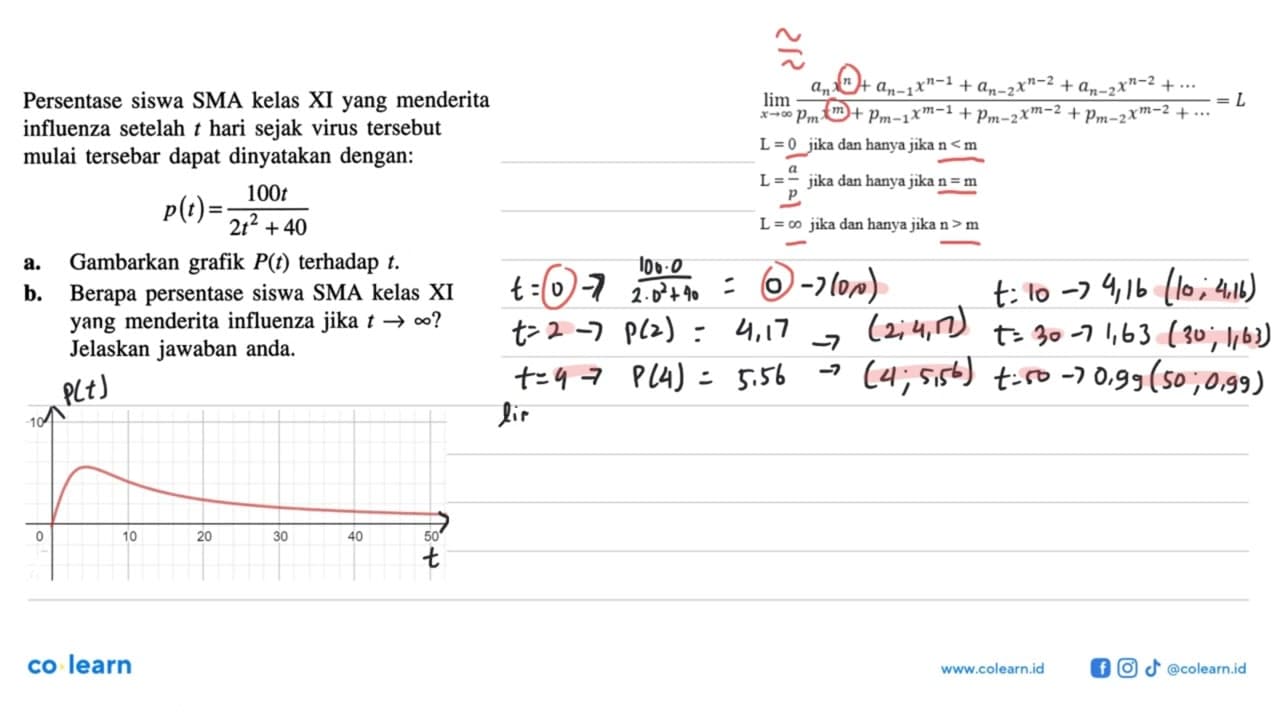 Persentase siswa SMA kelas XI yang menderita
influenza setelah t hari sejak virus tersebut
mulai tersebar dapat dinyatakan dengan:
p(t) = 100t / (2t² + 40)
a. Gambarkan grafik P(t) terhadap t.
b. Berapa persentase siswa SMA kelas XI
yang menderita influenza jika t → ∞?
Jelaskan jawaban anda.
P(t)
10
0 10 20 30 40 50
t
≈
lim x→∞ (aₙxⁿ + aₙ₋₁xⁿ⁻¹ + aₙ₋₂xⁿ⁻² + aₙ₋₂xⁿ⁻² + ⋯) / (pₘxᵐ + pₘ₋₁xᵐ⁻¹ + pₘ₋₂xᵐ⁻² + pₘ₋₂xᵐ⁻² + ⋯) = L
L = 0 jika dan hanya jika n < m
L = a/p jika dan hanya jika n = m
L = ∞ jika dan hanya jika n > m
t = 0 → 100·0 / 2·0²+40 = 0 → (0,0)
t = 2 → P(2) = 4,17 → (2; 4,17)
t = 4 → P(4) = 5.56 → (4; 5,56)
t: 10 → 4,16 (10; 4,16)
t = 30 → 1,63 (30; 1,63)
t: 50 → 0,99 (50; 0,99)
lim
co learn
www.colearn.id @colearn.id